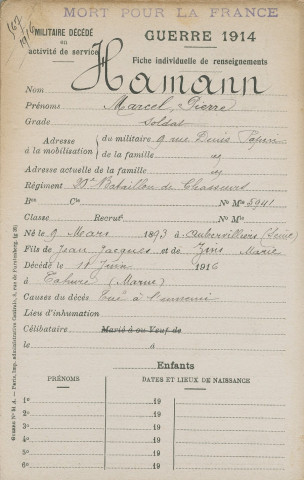 MORT POUR LA FRANCE
MILITAIRE DÉCÉDÉ
en
activité de service
GUERRE 1914
Fiche individuelle de renseignements
Nom Hamann
Prénoms Marcel, Pierre
Grade Soldat
Adresse à la mobilisation du militaire 9 rue Denis Papin
de la famille "
Adresse actuelle de la famille "
Régiment Bataillon de Chasseurs
Bon Cie No Mle 5941
Classe Recrut No Mle
Né le 9 Mars 1893 à Aubervilliers (Seine)
Fils de Jean Jacques et de Zins Marie
Décédé le 11 Juin 1916
à Tahure (Marne)
Causes du décès Tué à l'ennemi
Lieu d'inhumation
Célibataire Marié à ou Veuf de
le à
Enfants
PRÉNOMS DATES ET LIEUX DE NAISSANCE
1o 19
2o 19
3o 19
4o 19
5o 19
6o 19